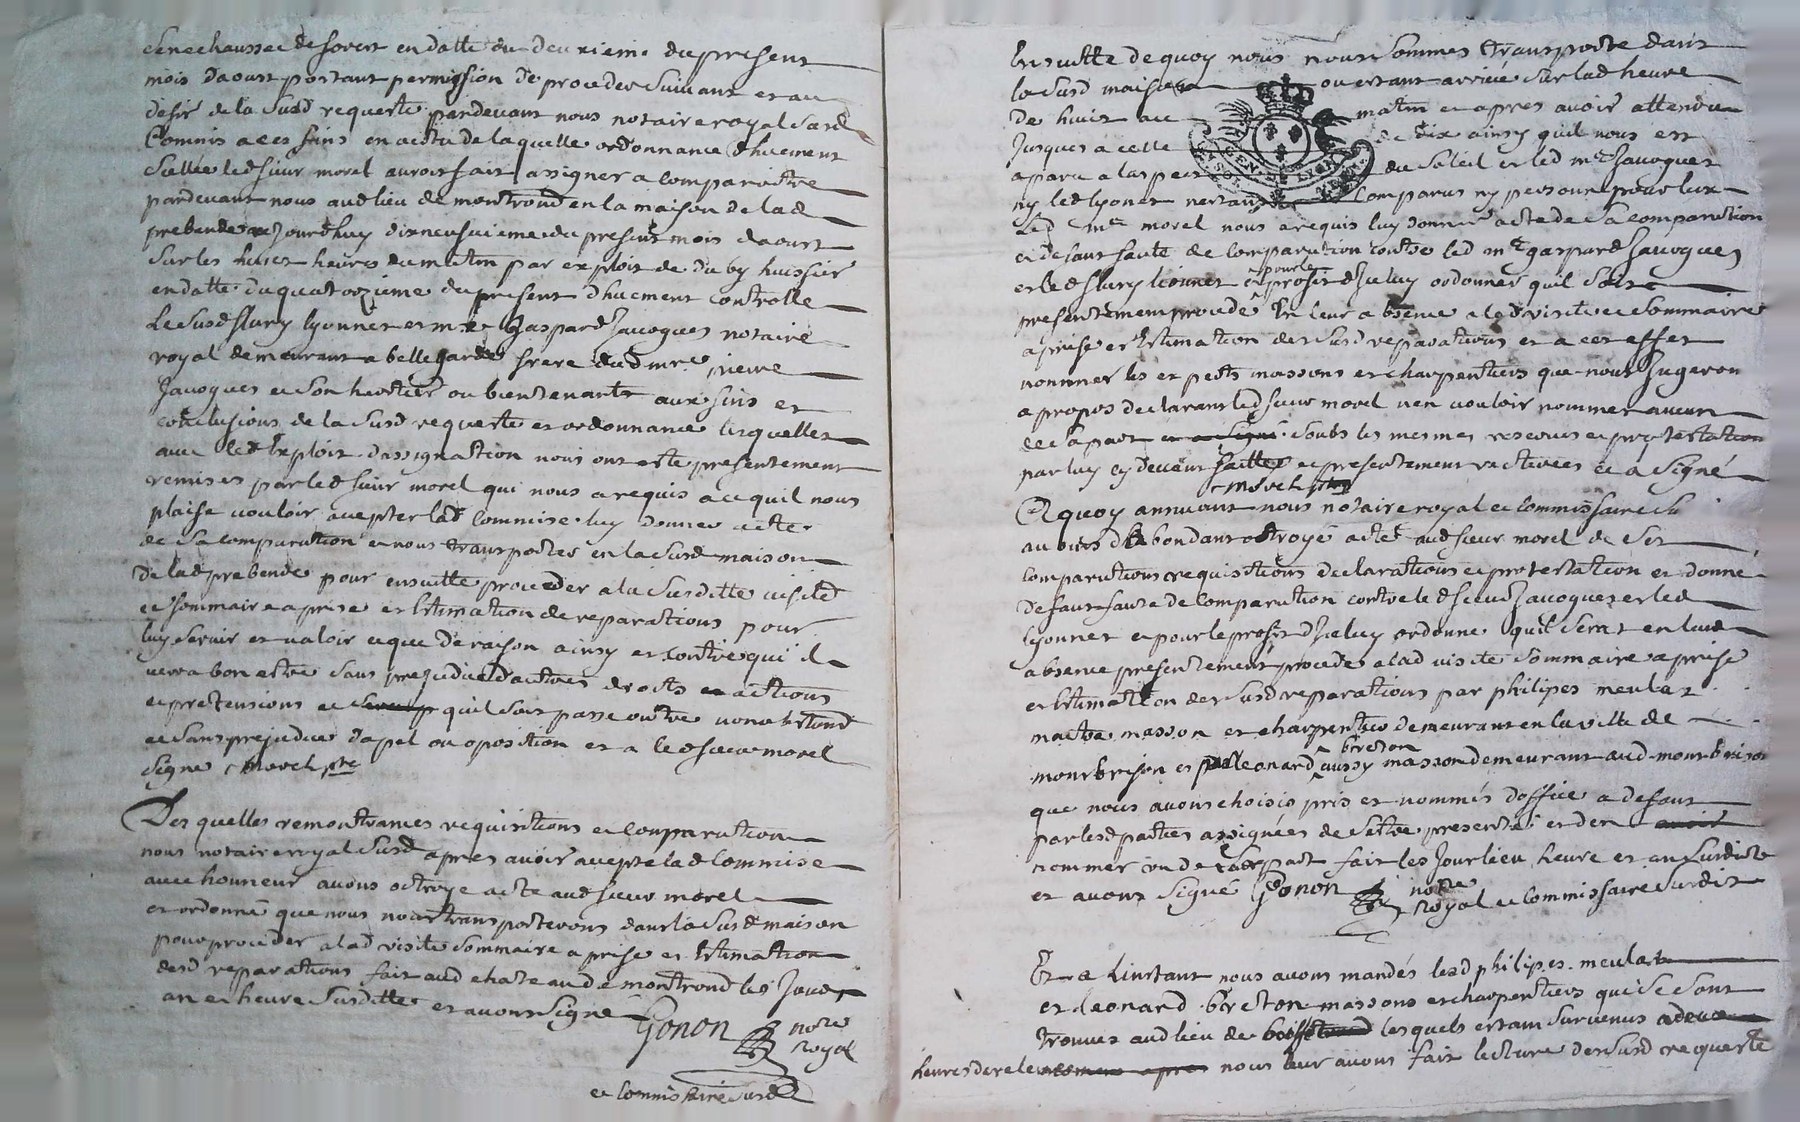 Senechaussée de forest en datte du deuxieme du present
mois daoust portant permission de proceder suivant et au
desir de la susd requeste pardevant nous notaire royal susd
Commis a ces fins en actu de laquelle ordonnance dhuement
Scellée led sieur morel auroit fait assigner a comparoitre
pardevant nous aud lieu de montrond en la maison de lad
prebende au Jourdhuy dixneufvieme du present mois daoust
sur les huict heures du matin par exploit de du by huissier
en datte du quatorzieme du present dhuement controllé
Le susd flury lyonnet et mre Gaspard Jacoques notaire
royal demeurant a bellegarde frere dud mre pierre
Jacoques et son heritier ou bientenants aux fins et
conclusions de la susd requeste et ordonnance lesquelles
avec led Exploit dassignation nous ont esté presentement
remises par led sieur morel qui nous a requis a ce quil nous
plaise vouloir accepter lad Commise luy donner acte
de sa comparution et nous transporter en la susd maison
de lad prebende pour ensuitte proceder a la susditte visitte
et sommaire aprise et Estimation de reparations pour
luy servir et valoir ce que de raison ainsy et contre qui il
verra bon estre sans prejudice dautres droits et actions
et pretensions et quil soit passé outre nonobstand
et sans prejudice dapel ou oposition et a led sieur morel
signé morel ptre
Des quelles remontrances requisitions et comparution
nous notaire royal susd apres avoir accepté lad Commise
avec honneur avons octroye acte aud sieur morel
et ordonné que nous nous transporterons dans la susd maison
pour proceder a lad visite sommaire aprise et Estimation
desd reparations fait aud chateau de montrond les Jour
an et heure susdittes et avons signé
Gonon notre
royal
et Commissaire susd
Ensuitte de quoy nous nous sommes transporté dans
la susd maison ou estant arrivé sur lad heure
de huict au matin et apres avoir attendu
Jusques a celle de dix ainsy quil nous est
aparu a laspect du Soleil et led mre Jacoques
ny led lyonet nestant Comparus ny personne pour eux
Led mre morel nous a requis luy donner acte de sa comparution
et defaut faute de comparution contre led mre gaspard Jacoques
et led flury lionnet et pour le profit dicluy ordonner quil soit
presentement procedé En leur absence a lad visite et sommaire
aprise et Estimation des susd reparations et a cet effet
nommer les experts massons et charpentiers que nous Jugeron
a propos declarant led sieur morel nen vouloir nommer aucun
de sa part soubs les mesmes reserves et protestation
par luy cy devant faittes et presentement reiterées et a signé
morel ptre
A quoy annuant nous notaire royal et commissaire su
avons dabondant octroyé acte aud sieur morel de ses
comparutions requisitions declarations et protestation et donné
defaut faute de comparution contre led sieur Jacoques et led
lyonnet et pour le profit dicluy ordonné quil sera en leur
absence presentement procedé a lad visite sommaire aprise
et Estimation des susd reparations par philipes meulat
maitre masson et charpentier demeurant en la ville de
montbrison et leonard breton aussy masson demeurant aud montbrison
que nous avons choisis pris et nommés doffice a defaut
par lesd parties assignées de setre presenté et den
nommer un de leur part fait les Jour lieu heure et an susdicts
et avons signé Gonon notre
royal et commissaire susdit
Et a Linstant nous avons mandés lesd philipes meulat
et leonard breton massons et charpentiers qui se sont
trouvés aud lieu de lesquels estant survenus a deux
heures de relevée nous leur avons fait lecture des susd requeste